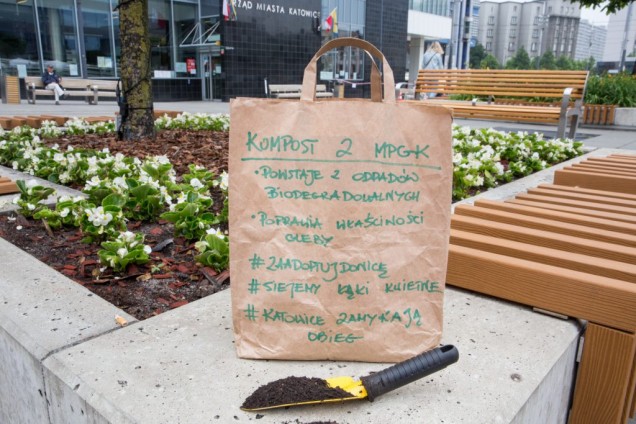 RZĄD MIASTA KATOWIC
KOMPOST Z MPGK
• POWSTAJE Z ODPADÓW
BIODEGRADOWALNYCH
• POPRAWIA WŁAŚCIWOŚCI
GLEBY
# ZAADOPTUJDONICĘ
# SIEJEMY ŁĄKI KWIETNE
# KATOWICE ZAMYKAJĄ
OBIEG